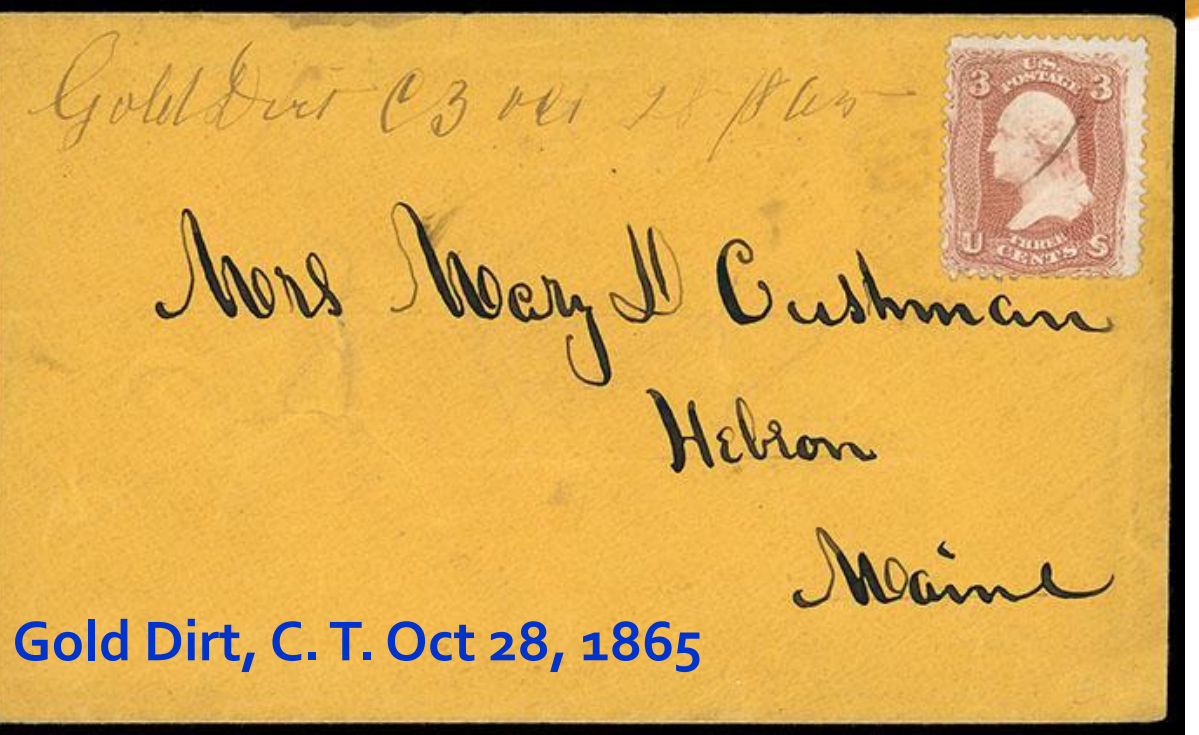 Gold Dirt C T Oct 28 1865
3 U.S. POSTAGE 3
U THREE CENTS S
Mrs Mary D Cushman
Hebron
Maine
Gold Dirt, C. T. Oct 28, 1865